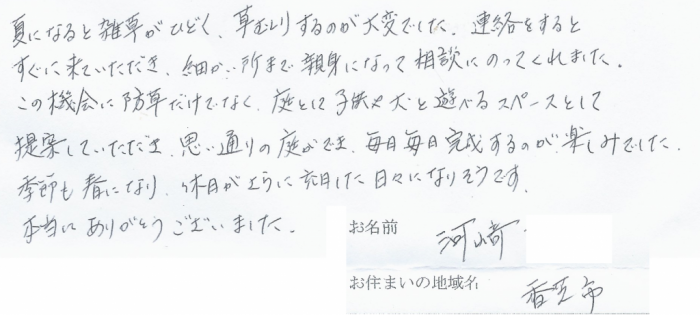 夏になると雑草がひどく、草むしりするのが大変でした。連絡をすると
すぐに来ていただき、細かい所まで親身になって相談にのってくれました。
この機会に防草だけでなく、庭として子供や犬と遊べるスペースとして
提案していただき、思い通りの庭ができ、毎日毎日完成するのが楽しみでした。
季節も春になり、休日がさらに充実した日々になりそうです。
本当にありがとうございました。
お名前 河崎
お住まいの地域名 香芝市